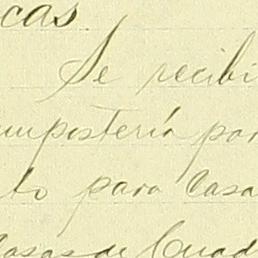 cas
Se recibi
mpostería par
to para Casa
Casas de Cuad